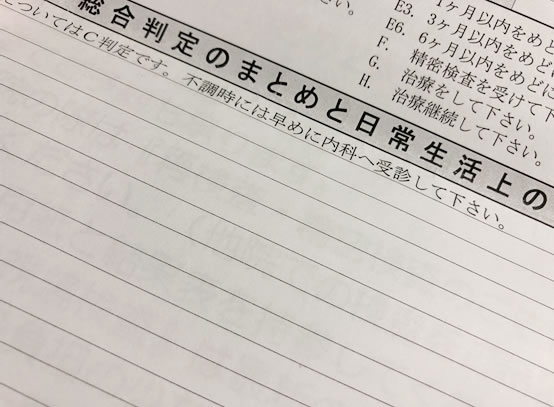 さい。
1ヶ月以内をめ
E3. 3ヶ月以内をめど
E6. 6ヶ月以内をめどに
F. 精密検査を受けて下
G. 治療をして下さい。
H. 治療継続して下さい。
総合判定のまとめと日常生活上の
についてはC判定です。不調時には早めに内科へ受診して下さい。